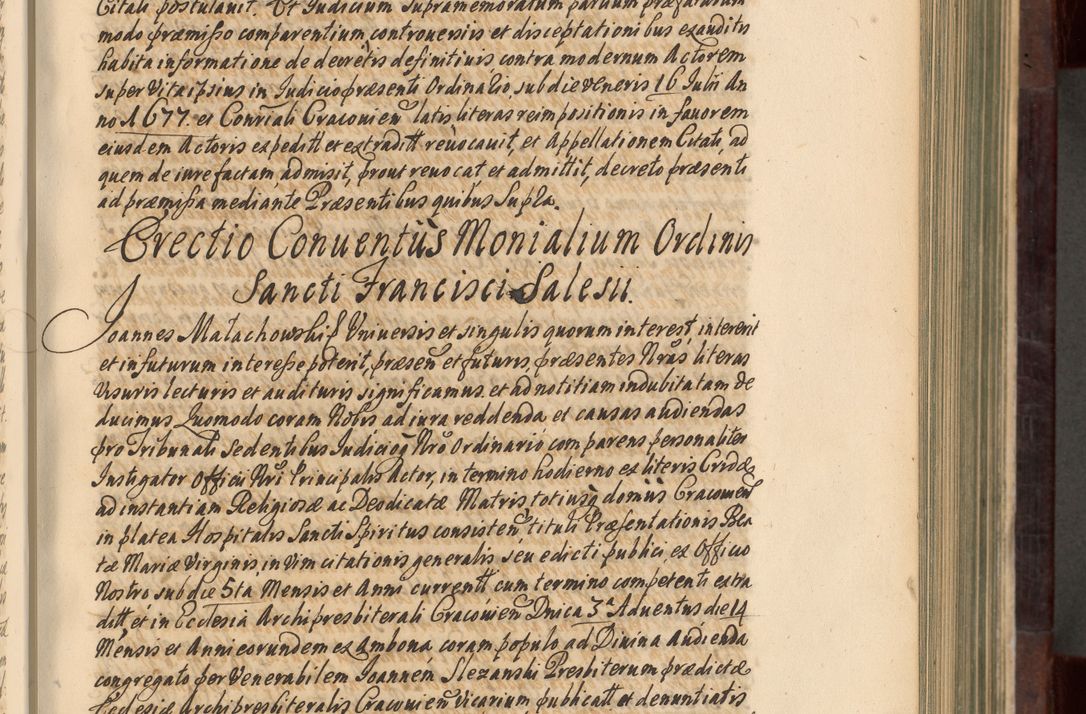 Citati postulauit. Et Iudicium Supramemoratum partium præfatarum
modo præmisso comparentium controuersiis et disceptationibus exauditis
habita informatione de decretis definitiuis contra modernum Actorem
super Vita ipsius in Iudicio præsenti Ordinario, sub die Veneris 16 Julii An
no 1677. et Consiali Cracouien latis literas reimpositionis in fauorem
eiusdem Actoris expeditt et extraditt reuocauit, et Appellationem Citati, ad
quem de iure factam, admisit, prout reuocat, et admittit, decreto præsenti
ad præmissa mediante Præsentibus quibus Supra.
Erectio Conuentus Monialium Ordinis
Sancti Francisci Salesii.
Joannes Małachowski Vniuersis et singulis quorum interest, intererit
et in futurum interesse poterit, præsen et futuris, præsentes Nras literas
Visuris lecturis et audituris significamus et ad notitiam indubitatam de
ducimus Quomodo coram Nobis ad iura reddenda et causas audiendas
pro Tribunali Sedentibus Iudicioq Nro Ordinario comparens personaliter
Instigator Officii Nri Principalis Actor, in termino hodierno ex literis Cridæ
ad instantiam Religiosæ ac Deodicatæ Matris, totiusq domus Cracouien
in platea Hospitalis Sancti Spiritus consisten tituli Præsentationis Bea
tæ Mariæ Virginis, in Vim citationis generalis seu edicti publici ex Officio
Nostro sub die 5ta Mensis et Anni currentt cum termino competenti extra
ditt, et in Ecclesia Archipresbiterali Cracouien Dnica 3a Aduentus die 14
Mensis et Anni eorundem ex Ambona coram populo ad Diuina Audienda
congregato per Venerabilem Joannem Slezanski Presbiterum prædictæ
Ecclesiæ Archipresbiteralis Cracouien Vicarium publicatt et denuntiatis